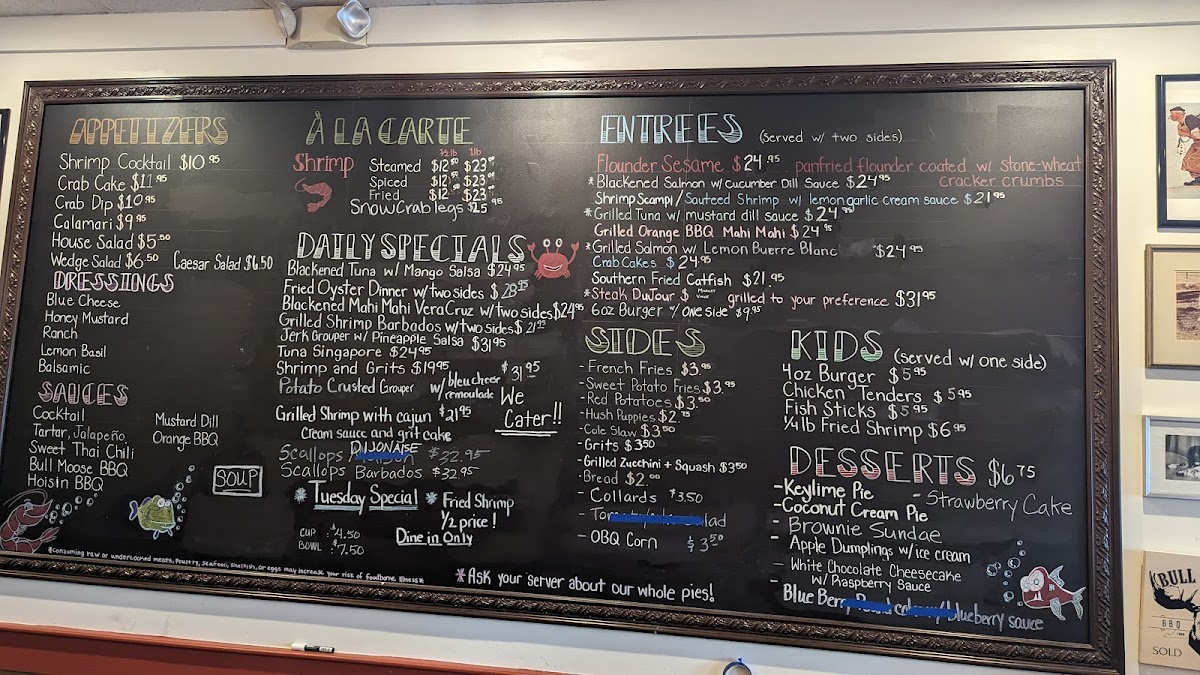 APPETIZERS
Shrimp Cocktail $10.95
Crab Cake $11.95
Crab Dip $10.95
Calamari $9.95
House Salad $5.50
Wedge Salad $6.50 Caesar Salad $6.50
DRESSINGS
Blue Cheese
Honey Mustard
Ranch
Lemon Basil
Balsamic
SAUCES
Cocktail
Tartar, Jalapeño
Sweet Thai Chili
Bull Moose BBQ
Hoisin BBQ
Mustard Dill
Orange BBQ
SOUP
CUP $4.50
BOWL $7.50
*consuming raw or undercooked meats, poultry, seafood, shellfish, or eggs may increase your risk of foodborne illness*
À LA CARTE
½ lb 1 lb
Shrimp Steamed $12.50 $23.00
Spiced $12 $23
Fried $12 $23
Snow Crab legs $25.95
DAILY SPECIALS
Blackened Tuna w/ Mango Salsa $24.95
Fried Oyster Dinner w/ two sides $28.95
Blackened Mahi Mahi VeraCruz w/ two sides $24.95
Grilled Shrimp Barbados w/ two sides $21.95
Jerk Grouper w/ Pineapple Salsa $31.95
Tuna Singapore $24.95
Shrimp and Grits $19.95
Potato Crusted Grouper w/ bleu cheer remoulade $31.95
Grilled Shrimp with cajun $21.95
Cream sauce and grit cake
Scallops DIJONAISE $32.95
Scallops Barbados $32.95
We
Cater!!
* Tuesday Special * Fried Shrimp
½ price!
Dine in Only
*Ask your server about our whole pies!
ENTREES (served w/ two sides)
Flounder Sesame $24.95 panfried flounder coated w/ stone-wheat
cracker crumbs
*Blackened Salmon w/ Cucumber Dill Sauce $24.95
Shrimp Scampi/Sauteed Shrimp w/ lemon garlic cream sauce $21.95
*Grilled Tuna w/ mustard dill sauce $24.95
Grilled Orange BBQ Mahi Mahi $24.95
*Grilled Salmon w/ Lemon Buerre Blanc $24.95
Crab Cakes $24.95
Southern Fried Catfish $21.95
*Steak DuJour $ grilled to your preference $31.95
6oz Burger w/ one side $9.95
SIDES
- French Fries $3.95
- Sweet Potato Fries $3.95
- Red Potatoes $3.50
- Hush Puppies $2.75
- Cole Slaw $3.50
- Grits $3.50
- Grilled Zucchini + Squash $3.50
- Bread $2.00
- Collards $3.50
- OBQ Corn $3.50
KIDS (served w/ one side)
4oz Burger $5.95
Chicken Tenders $5.95
Fish Sticks $5.95
¼lb Fried Shrimp $6.95
DESSERTS $6.75
- Keylime Pie - Strawberry Cake
- Coconut Cream Pie
- Brownie Sundae
- Apple Dumplings w/ ice cream
- White Chocolate Cheesecake
w/ Raspberry Sauce
- Blue Berry blueberry sauce
BULL
BBQ
SOLD